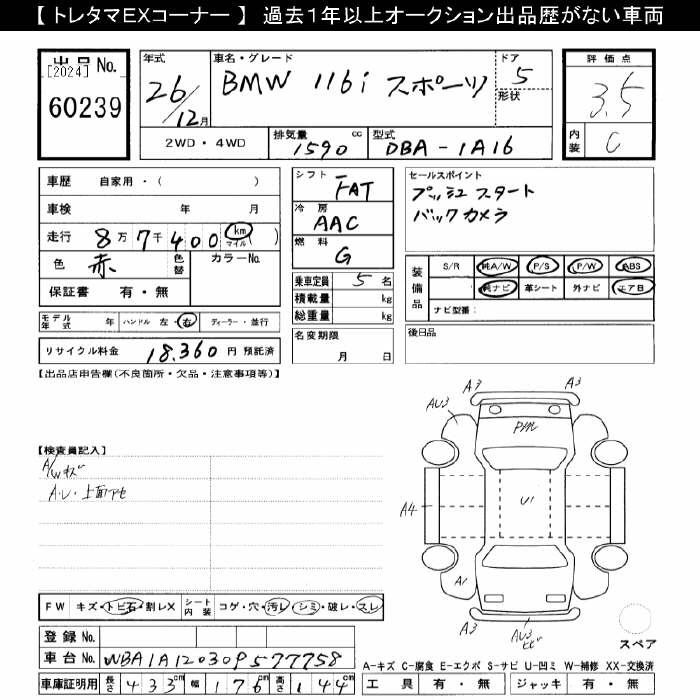 【 トレタマEXコーナー 】 過去1年以上オークション出品歴がない車両
出品 No.
[2024]
60239
年式
26/12月
車名・グレード
BMW 116i スポーツ
ドア
5
形状
評価点
3.5
内装
C
2WD・4WD
排気量 1590 cc
型式 DBA-1A16
車歴 自家用・( )
車検 年 月
走行 8万7千400 km マイル ( )
色 赤 色替 カラーNo.
保証書 有・無
モデル年式 年 ハンドル 左・右 ディーラー・並行
リサイクル料金 18,360 円 預託済
シフト FAT
冷房 AAC
燃料 G
乗車定員 5 名
積載量 kg
総重量 kg
名変期限
月 日
セールスポイント
プッシュスタート
バックカメラ
装備品
S/R 純A/W P/S P/W ABS
純ナビ 革シート 外ナビ エアB
ナビ型番:
後日品
【出品店申告欄(不良箇所・欠品・注意事項等)】
【検査員記入】
A/Wキズ
A・U・上面アセ
A3
A3
AU3
A4
U1
A1
A3
AU3
ヒビ
スペア
FW キズ・トビ石・割レX シート内装 コゲ・穴・汚レ・シミ・破レ・スレ
登録 No.
車台 No. WBA1A120309577758
車庫証明用 長さ 433cm 幅 176cm 高さ 144cm
A-キズ C-腐食 E-エクボ S-サビ U-凹ミ W-補修 XX-交換済
工具 有・無 ジャッキ 有・無